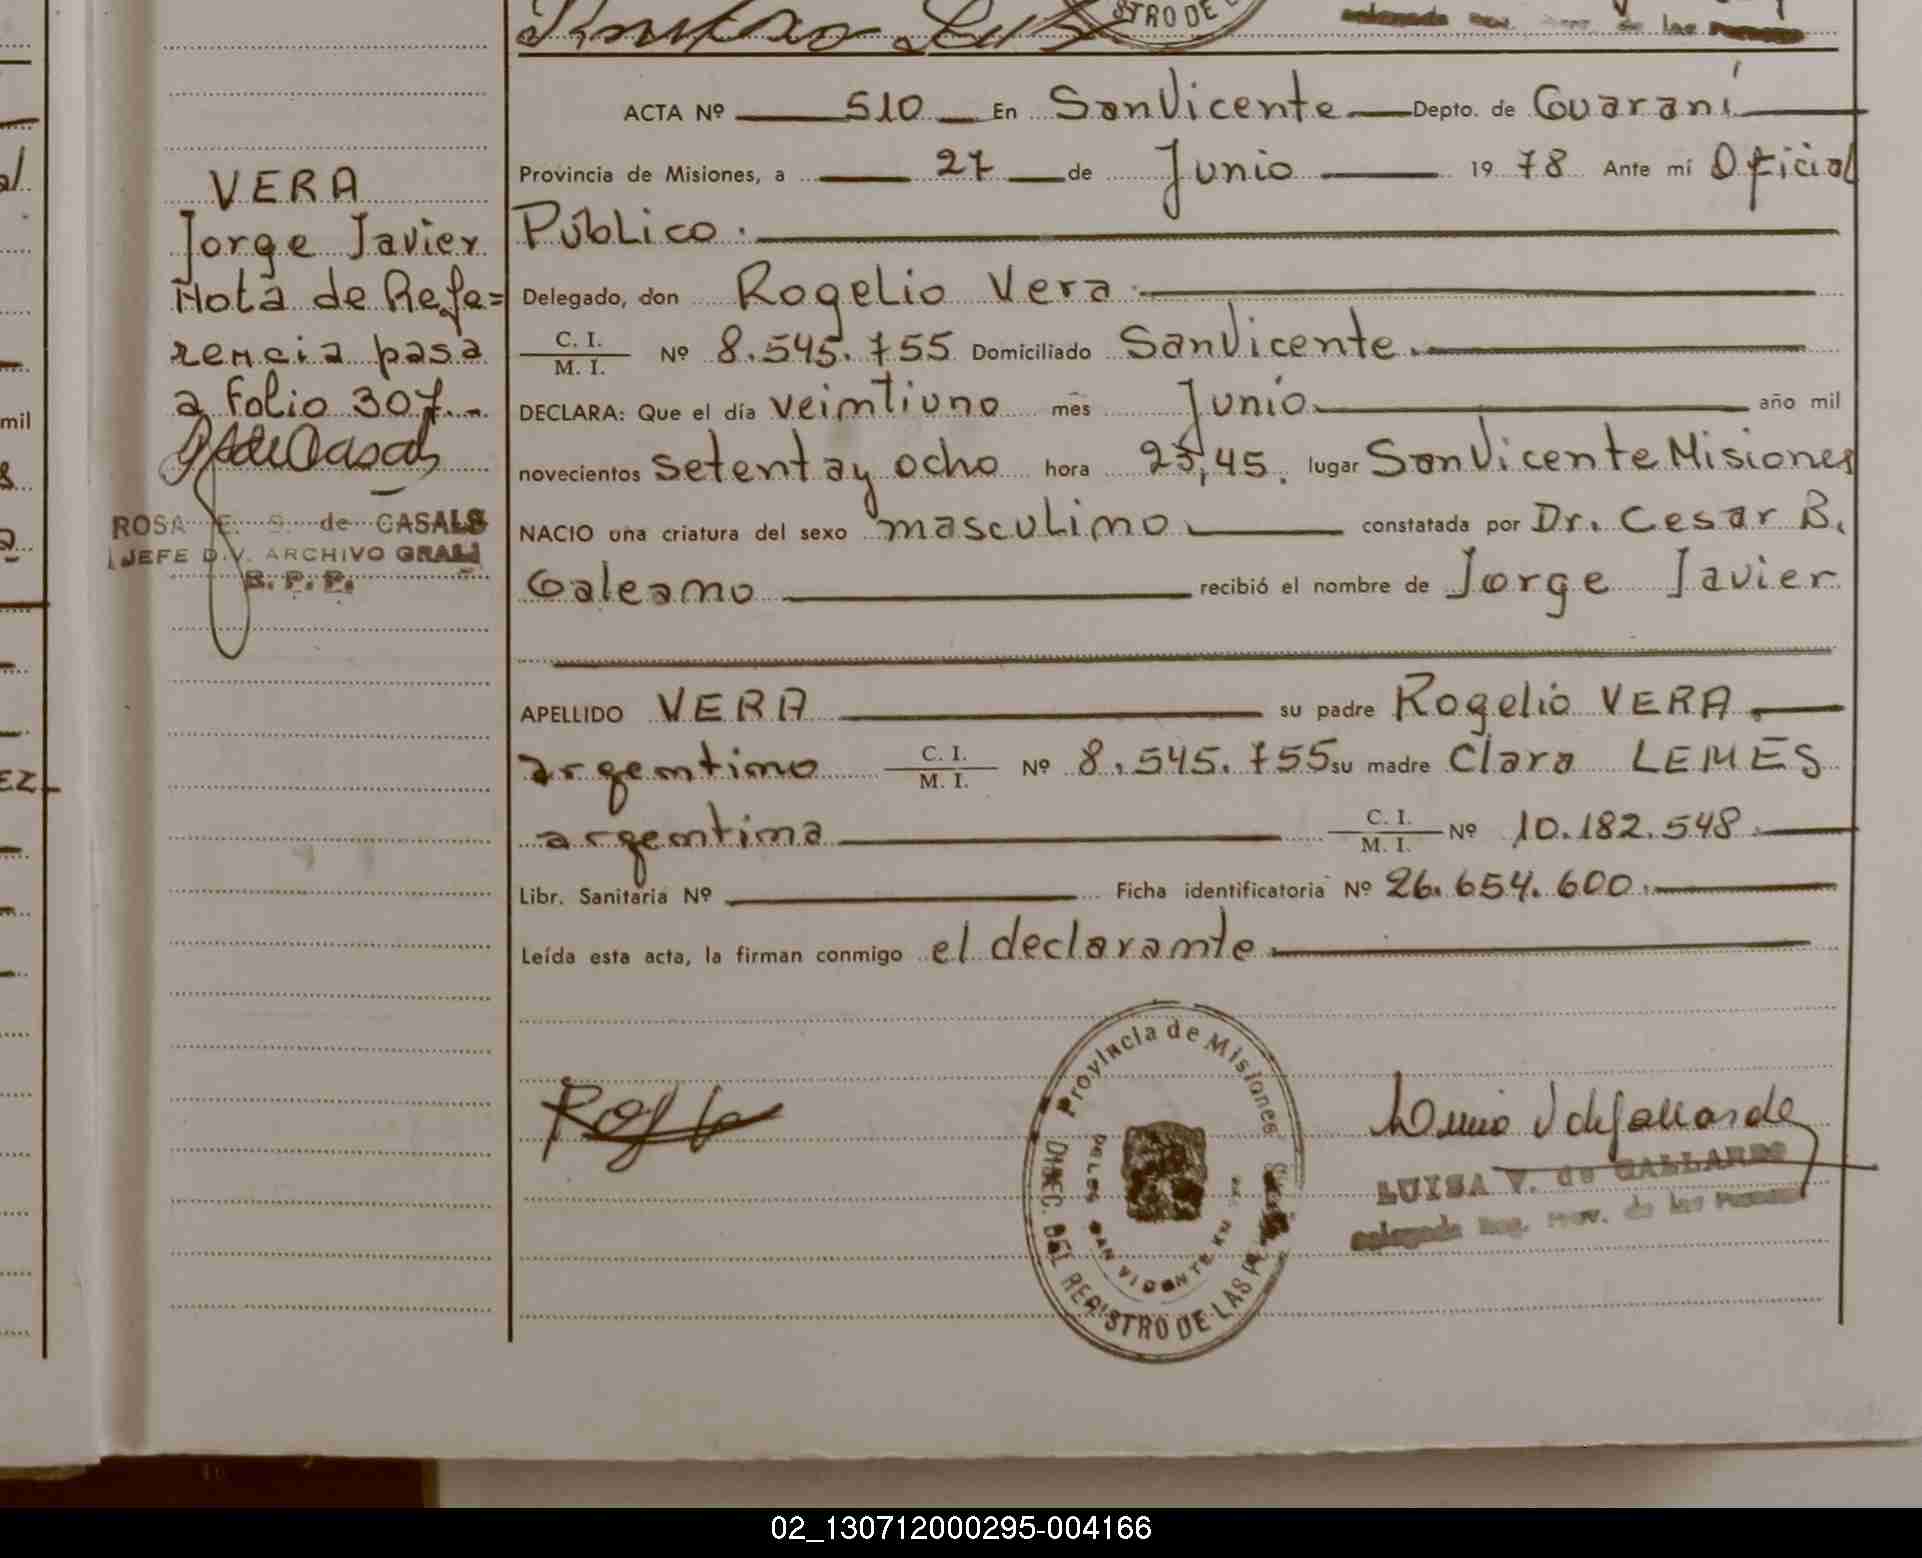 STRO DE
de las
ACTA Nº 510 En San Vicente Depto. de Guaraní
Provincia de Misiones, a 27 de Junio 1978 Ante mí Oficial
Público.
Delegado, don Rogelio Vera
C. I.
M. I. Nº 8.545.755 Domiciliado San Vicente.
DECLARA: Que el día veintiuno mes Junio año mil
novecientos setenta y ocho hora 23,45. lugar San Vicente Misiones
NACIO una criatura del sexo masculino constatada por Dr. Cesar B.
Galeano recibió el nombre de Jorge Javier
APELLIDO VERA su padre Rogelio VERA
argentino C. I. M. I. Nº 8.545.755 su madre Clara LEMES
argentina C. I. M. I. Nº 10.182.548
Libr. Sanitaria Nº Ficha identificatoria Nº 26.654.600.
Leída esta acta, la firman conmigo el declarante
VERA
Jorge Javier
Nota de Refe=
rencia pasa
a Folio 307
ROSA E. S. de CASALS
JEFE DIV. ARCHIVO GRAL
R. P. P.
Provincia de Misiones
DIREC. DEL REGISTRO DE LAS
SAN VICENTE
LUISA V. de GALLARDO
Delegada Reg. Prov. de las Personas
mil
EZ
02_130712000295-004166